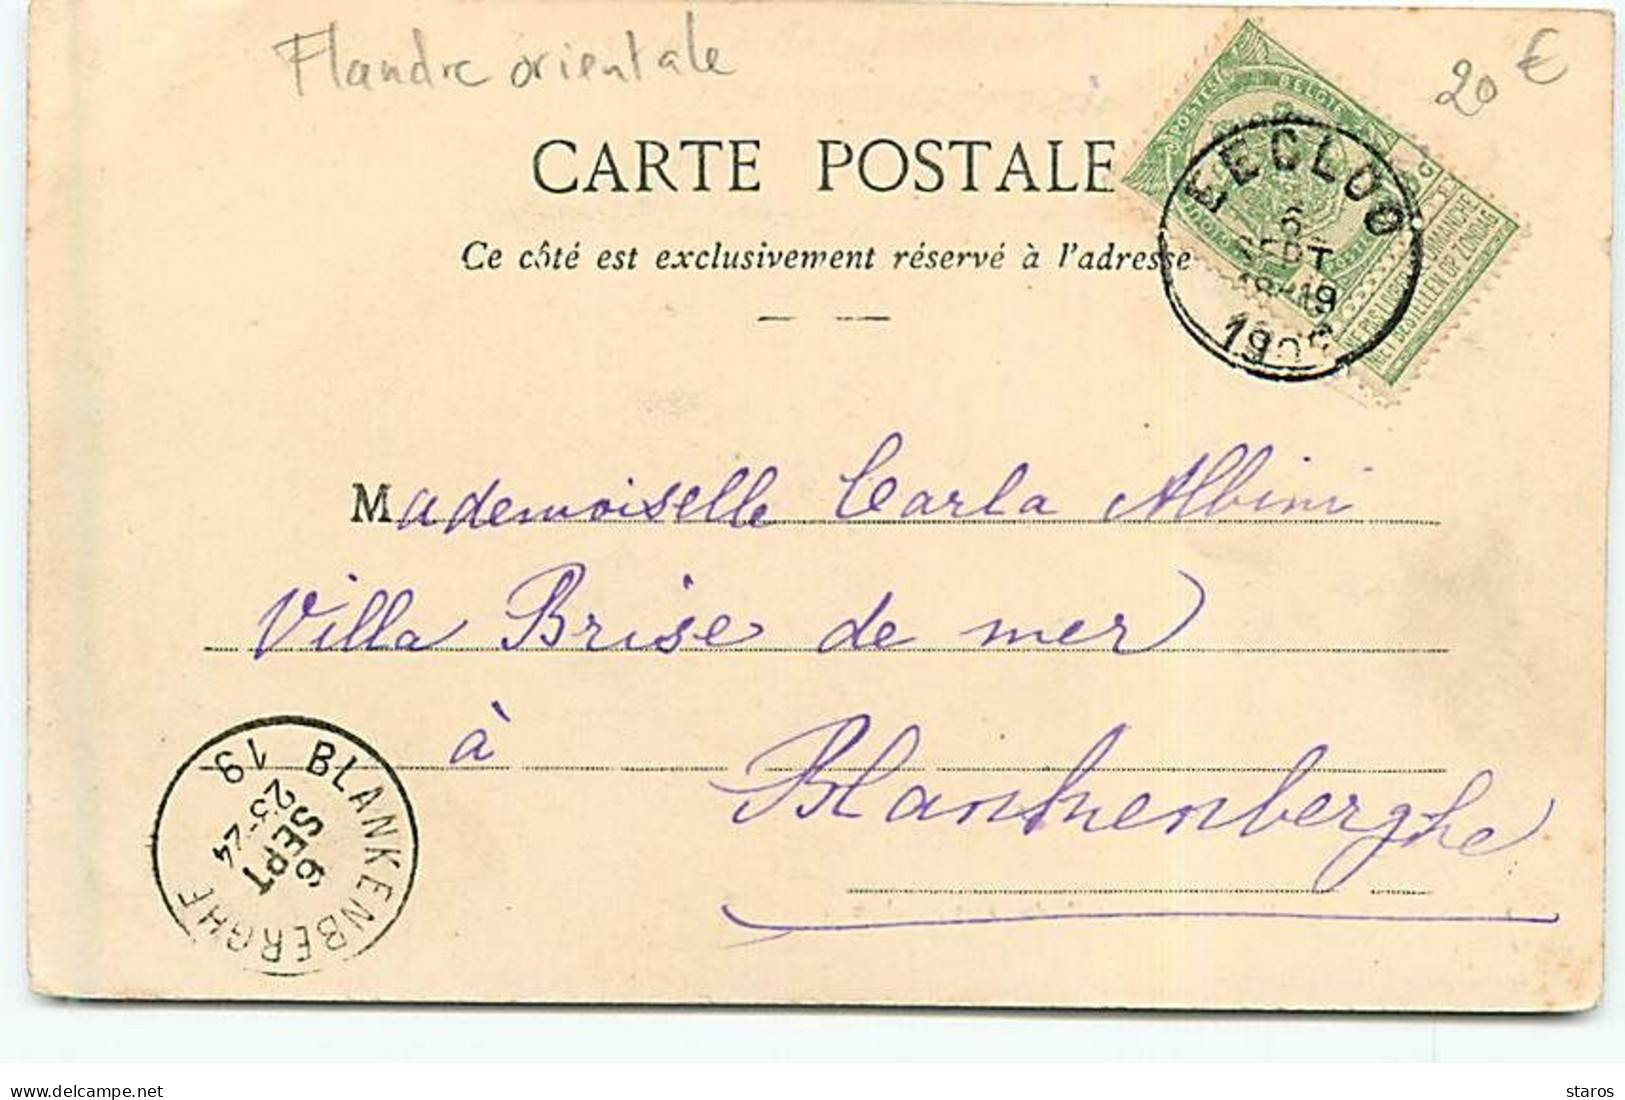 Flandre orientale
20 €
CARTE POSTALE
Ce côté est exclusivement réservé à l'adresse
POSTES BELGIE
EECLOO
6
SEPT
18-19
DIMANCHE
NIET BESTELLEN OP ZONDAG
Mademoiselle Carla Albini
Villa Brise de mer
à
Blankenberghe
BLANKENBERGHE
6
SEPT
23-24
19
delcampe.net
staros